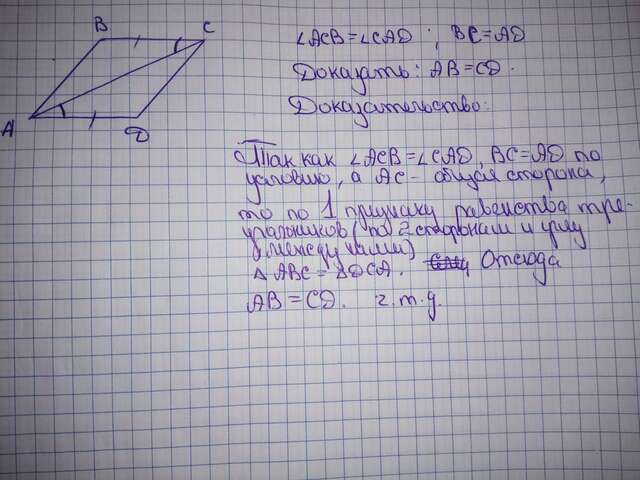 A
B
D
C
∠ACB = ∠CAD ; BC = AD
Доказать: AB = CD.
Доказательство:
Так как ∠ACB = ∠CAD, BC = AD по
условию, а AC - общая сторона,
то по 1 признаку равенства тре-
угольников (по 2 сторонам и углу
между ними)
△ ABC = △DCA. Отсюда
AB = CD. ч.т.д.